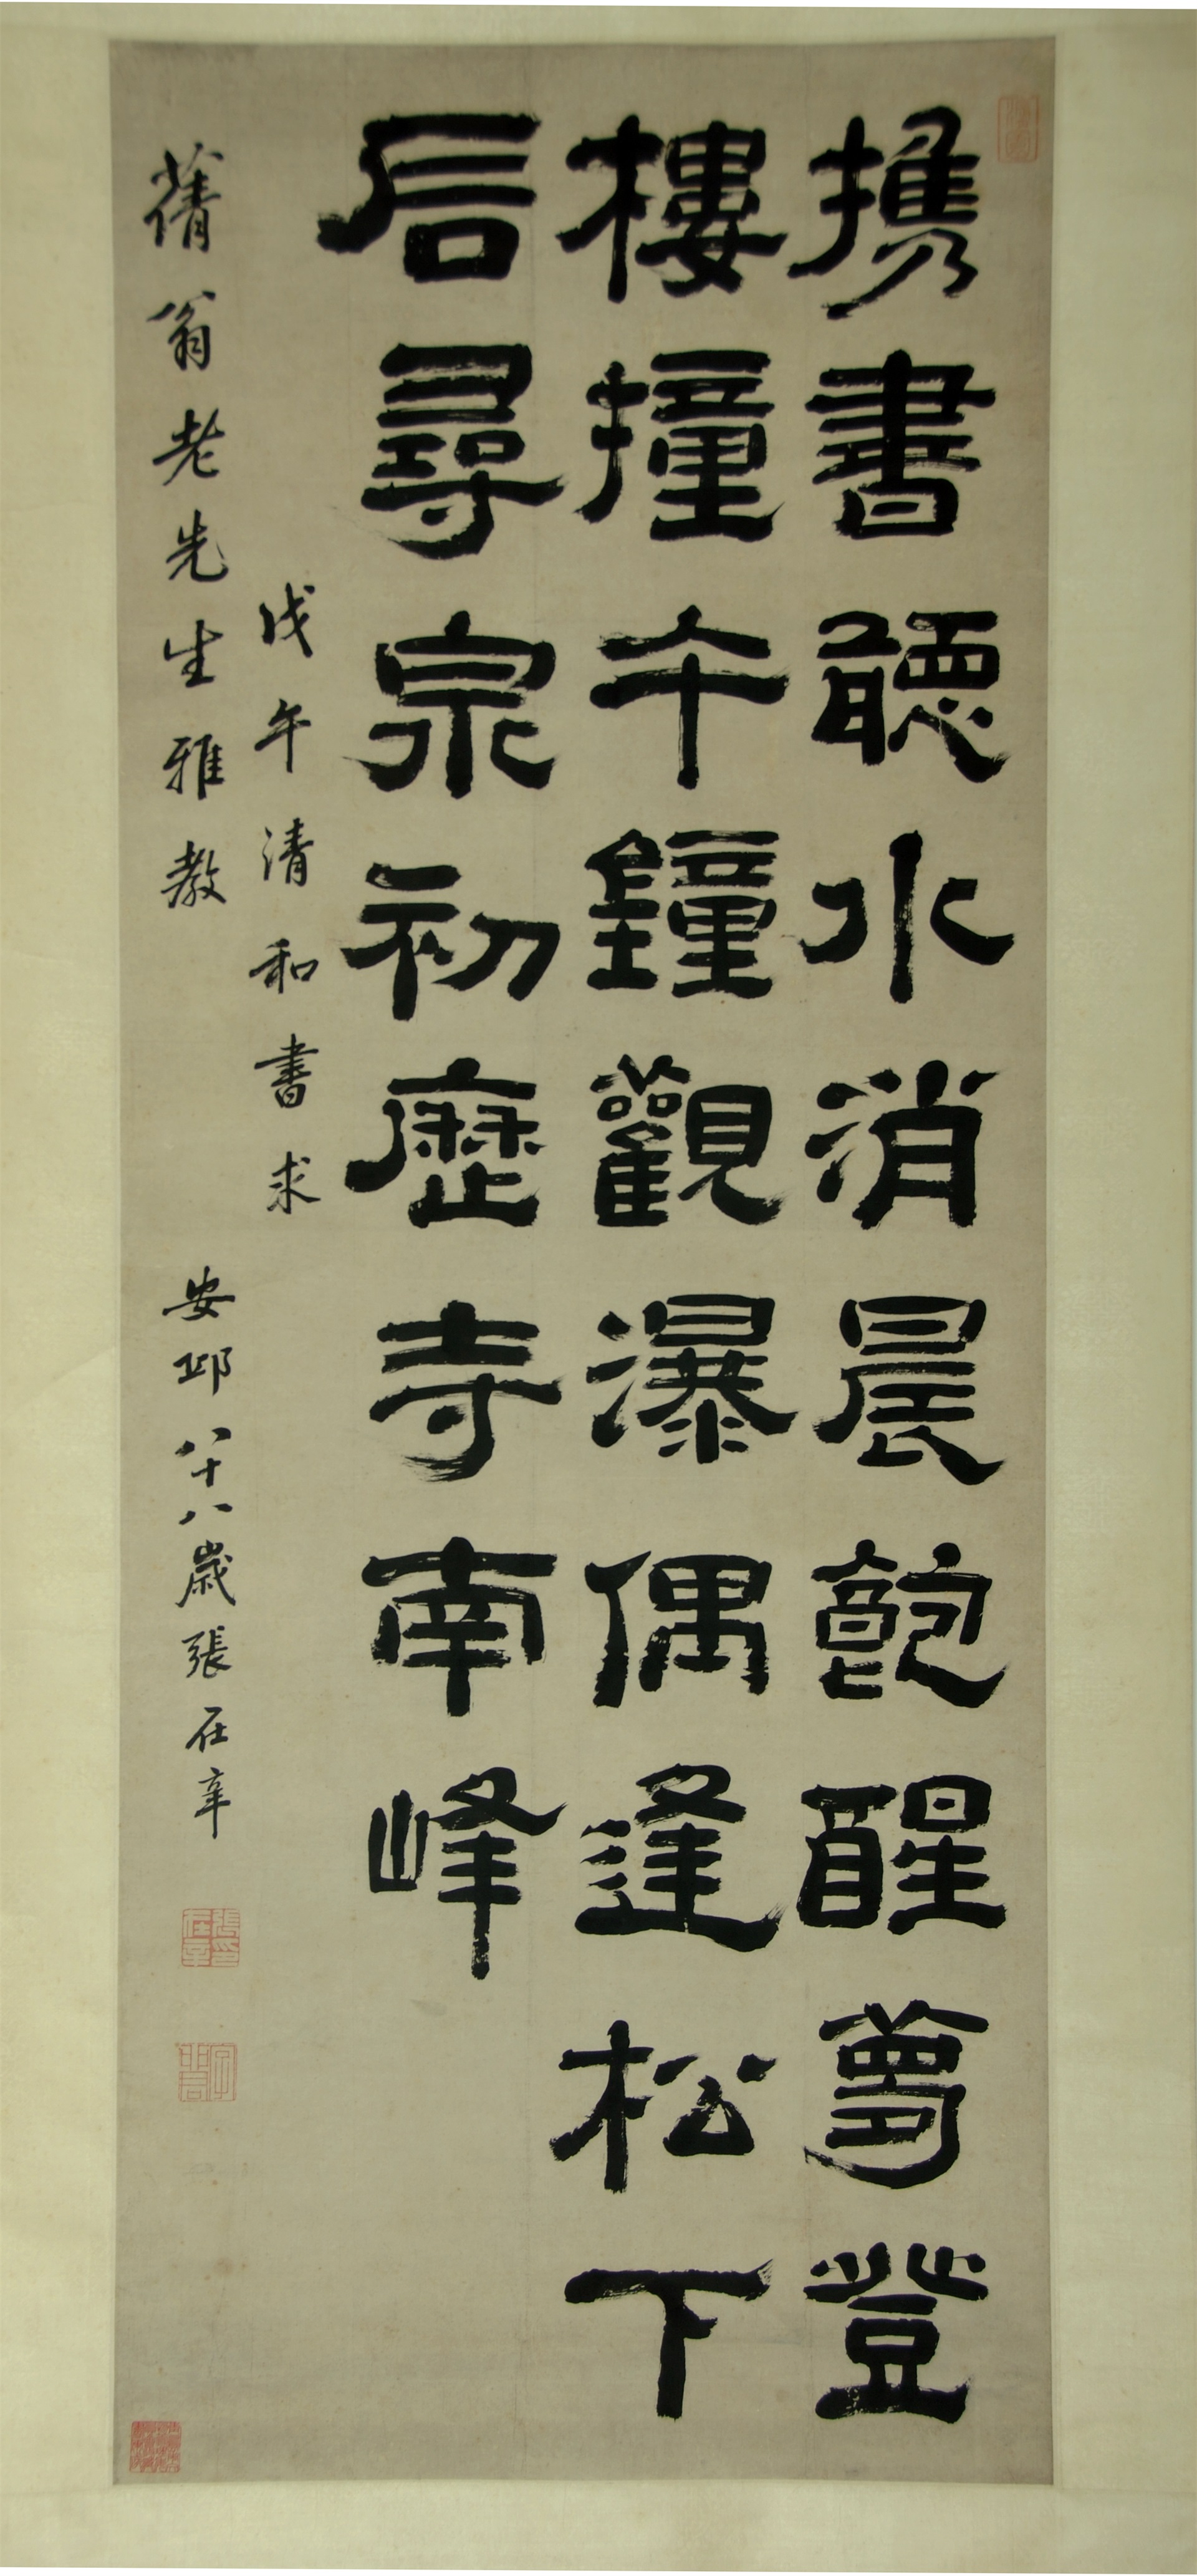 携書聽水消晨飽醒夢登
樓撞午鐘觀瀑偶逢松下
后尋宗初歷寺南峰
戊午清和書求
蒨翁老先生雅教
安邱八十八歲張在辛
張在辛印